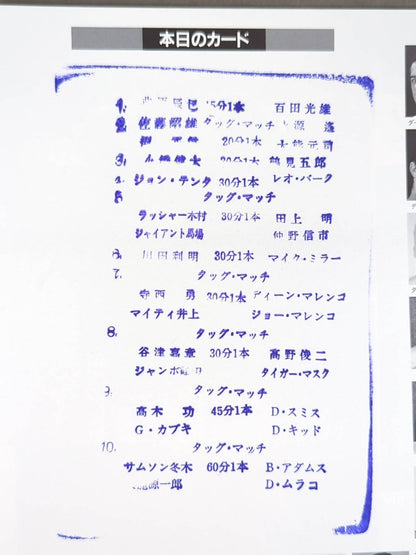 本日のカード
1. 辰巳 45分1本 百田光雄
2. 佐藤昭雄 タッグ・マッチ 遥
20分1本 大熊元司
3. 小橋健太 20分1本 鶴見五郎
4. ジョン・テンタ 30分1本 レオ・バーク
5 タッグ・マッチ
ラッシャー木村 30分1本 田上 明
ジャイアント馬場 仲野信市
6. 川田利明 30分1本 マイク・ミラー
7. タッグ・マッチ
寺西 勇 30分1本 ディーン・マレンコ
マイティ井上 ジョー・マレンコ
8. タッグ・マッチ
谷津嘉章 30分1本 高野俊二
ジャンボ タイガー・マスク
9. タッグ・マッチ
高木 功 45分1本 D・スミス
G・カブキ D・キッド
10. タッグ・マッチ
サムソン冬木 60分1本 B・アダムス
龍源一郎 D・ムラコ